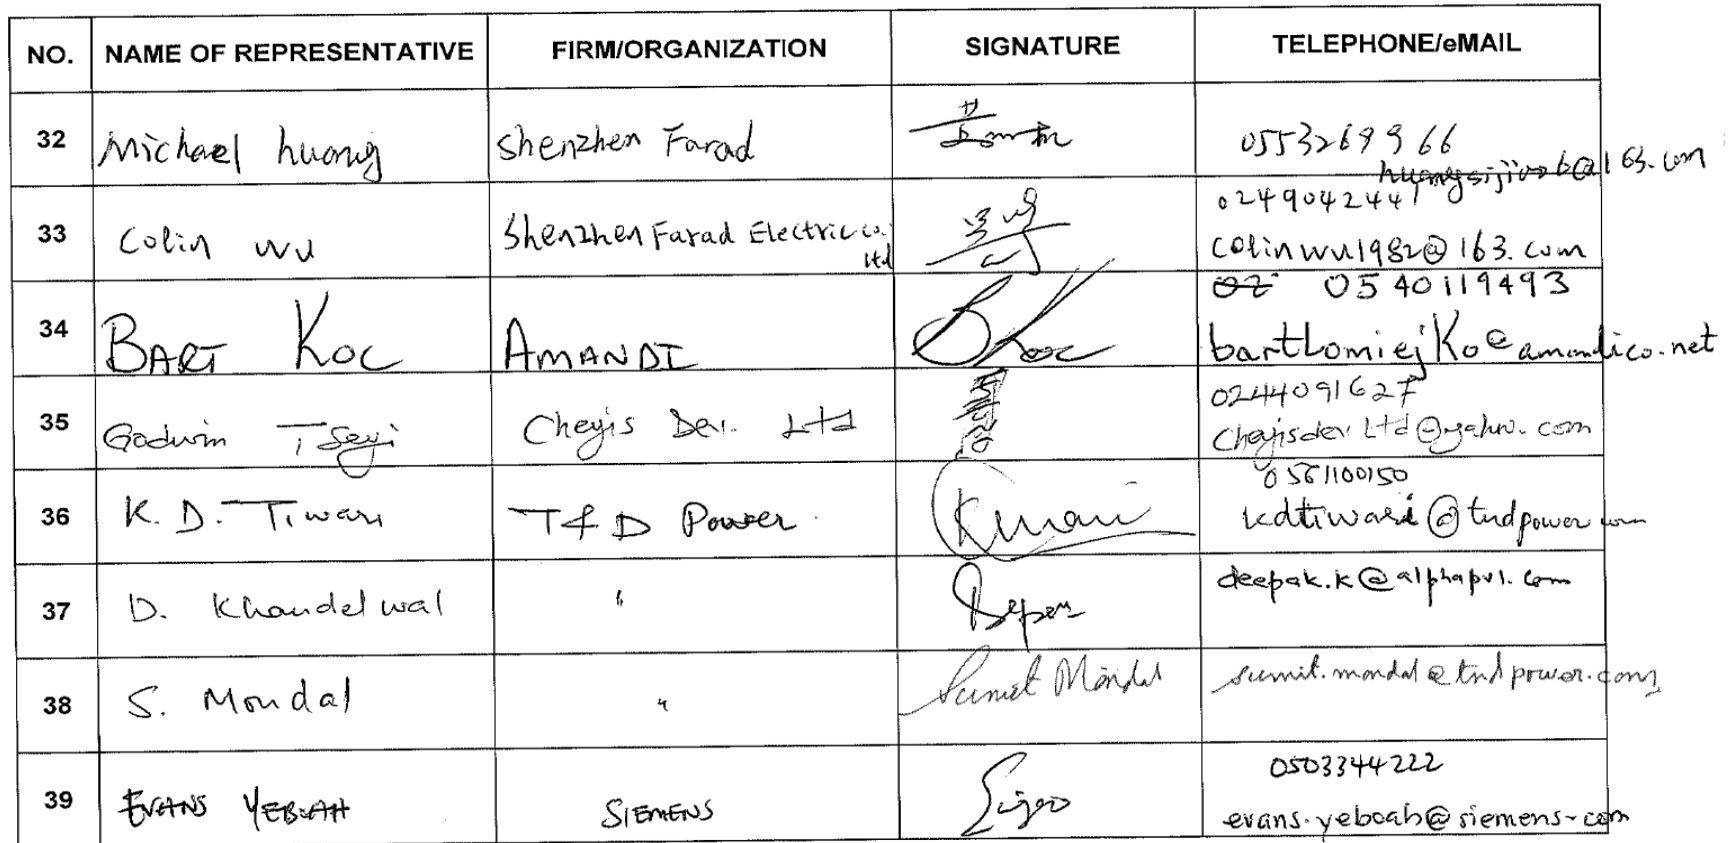 NO. NAME OF REPRESENTATIVE FIRM/ORGANIZATION SIGNATURE TELEPHONE/eMAIL
32 Michael huang Shenzhen Farad 0553269966
@163.com
33 Colin Wu Shenzhen Farad Electric co. Ltd 0249042447
colinwu1982@163.com
34 BART KOC AMANDI BKoc 0540119493
bartLomiejKo@amandico.net
35 Godwin Tseyi Cheyis Dev. Ltd 0244091627
CheyisdevLtd@yahoo.com
36 K. D. Tiwari T & D Power 0561100150
kdtiwari@tndpower.com
37 D. Khandelwal " deepak.k@alphapvl.com
38 S. Mondal " Sumit Mondal sumit.mondal@tndpower.com
39 EVANS YEBOAH SIEMENS 0503344222
evans.yeboah@siemens.com